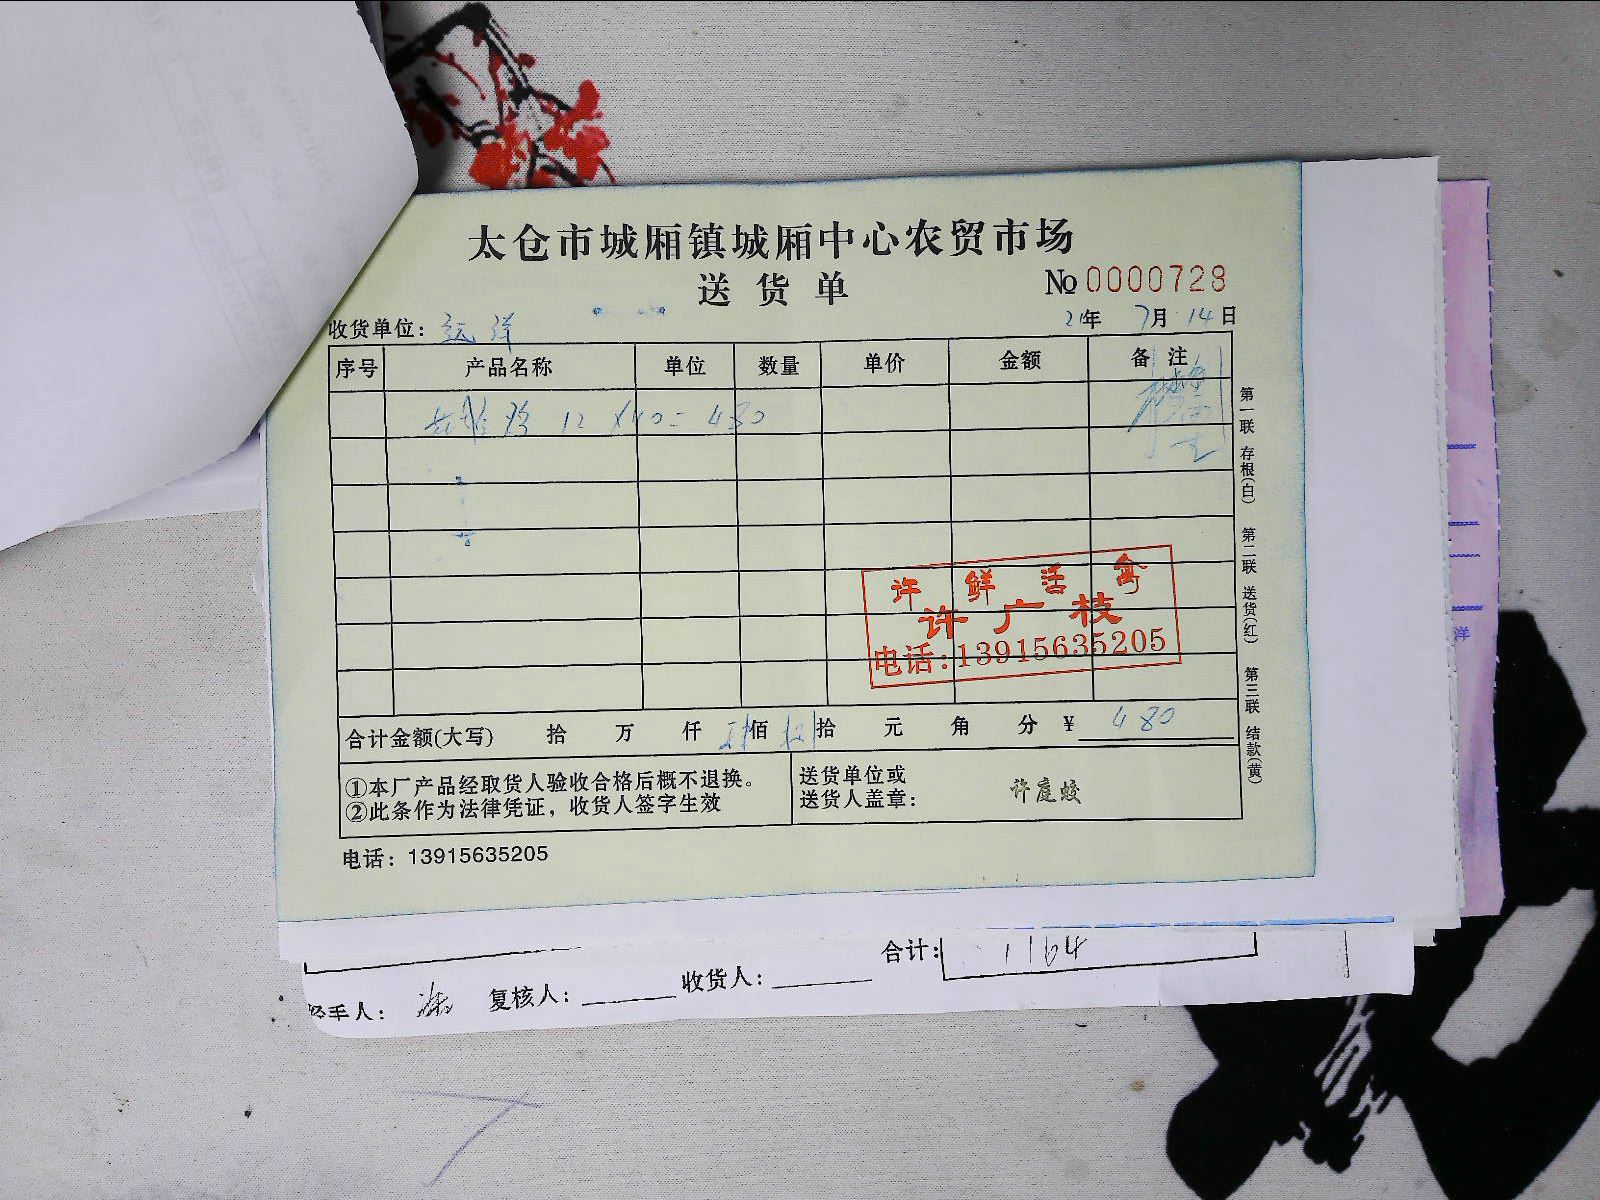 太仓市城厢镇城厢中心农贸市场
送货单
№0000728
收货单位：远洋
21年 7月 14日
序号 产品名称 单位 数量 单价 金额 备注
鸡 12 X40=480
许 鲜 活 禽
许广枝
电话:13915635205
合计金额(大写) 拾 万 仟 肆佰 捌拾 元 角 分 ¥ 480
①本厂产品经取货人验收合格后概不退换。
②此条作为法律凭证，收货人签字生效
送货单位或
送货人盖章：许庭蛟
电话：13915635205
第一联 存根(白) 第二联 送货(红) 第三联 结款(黄)
洋
合计: 1164
经手人： 复核人： 收货人：